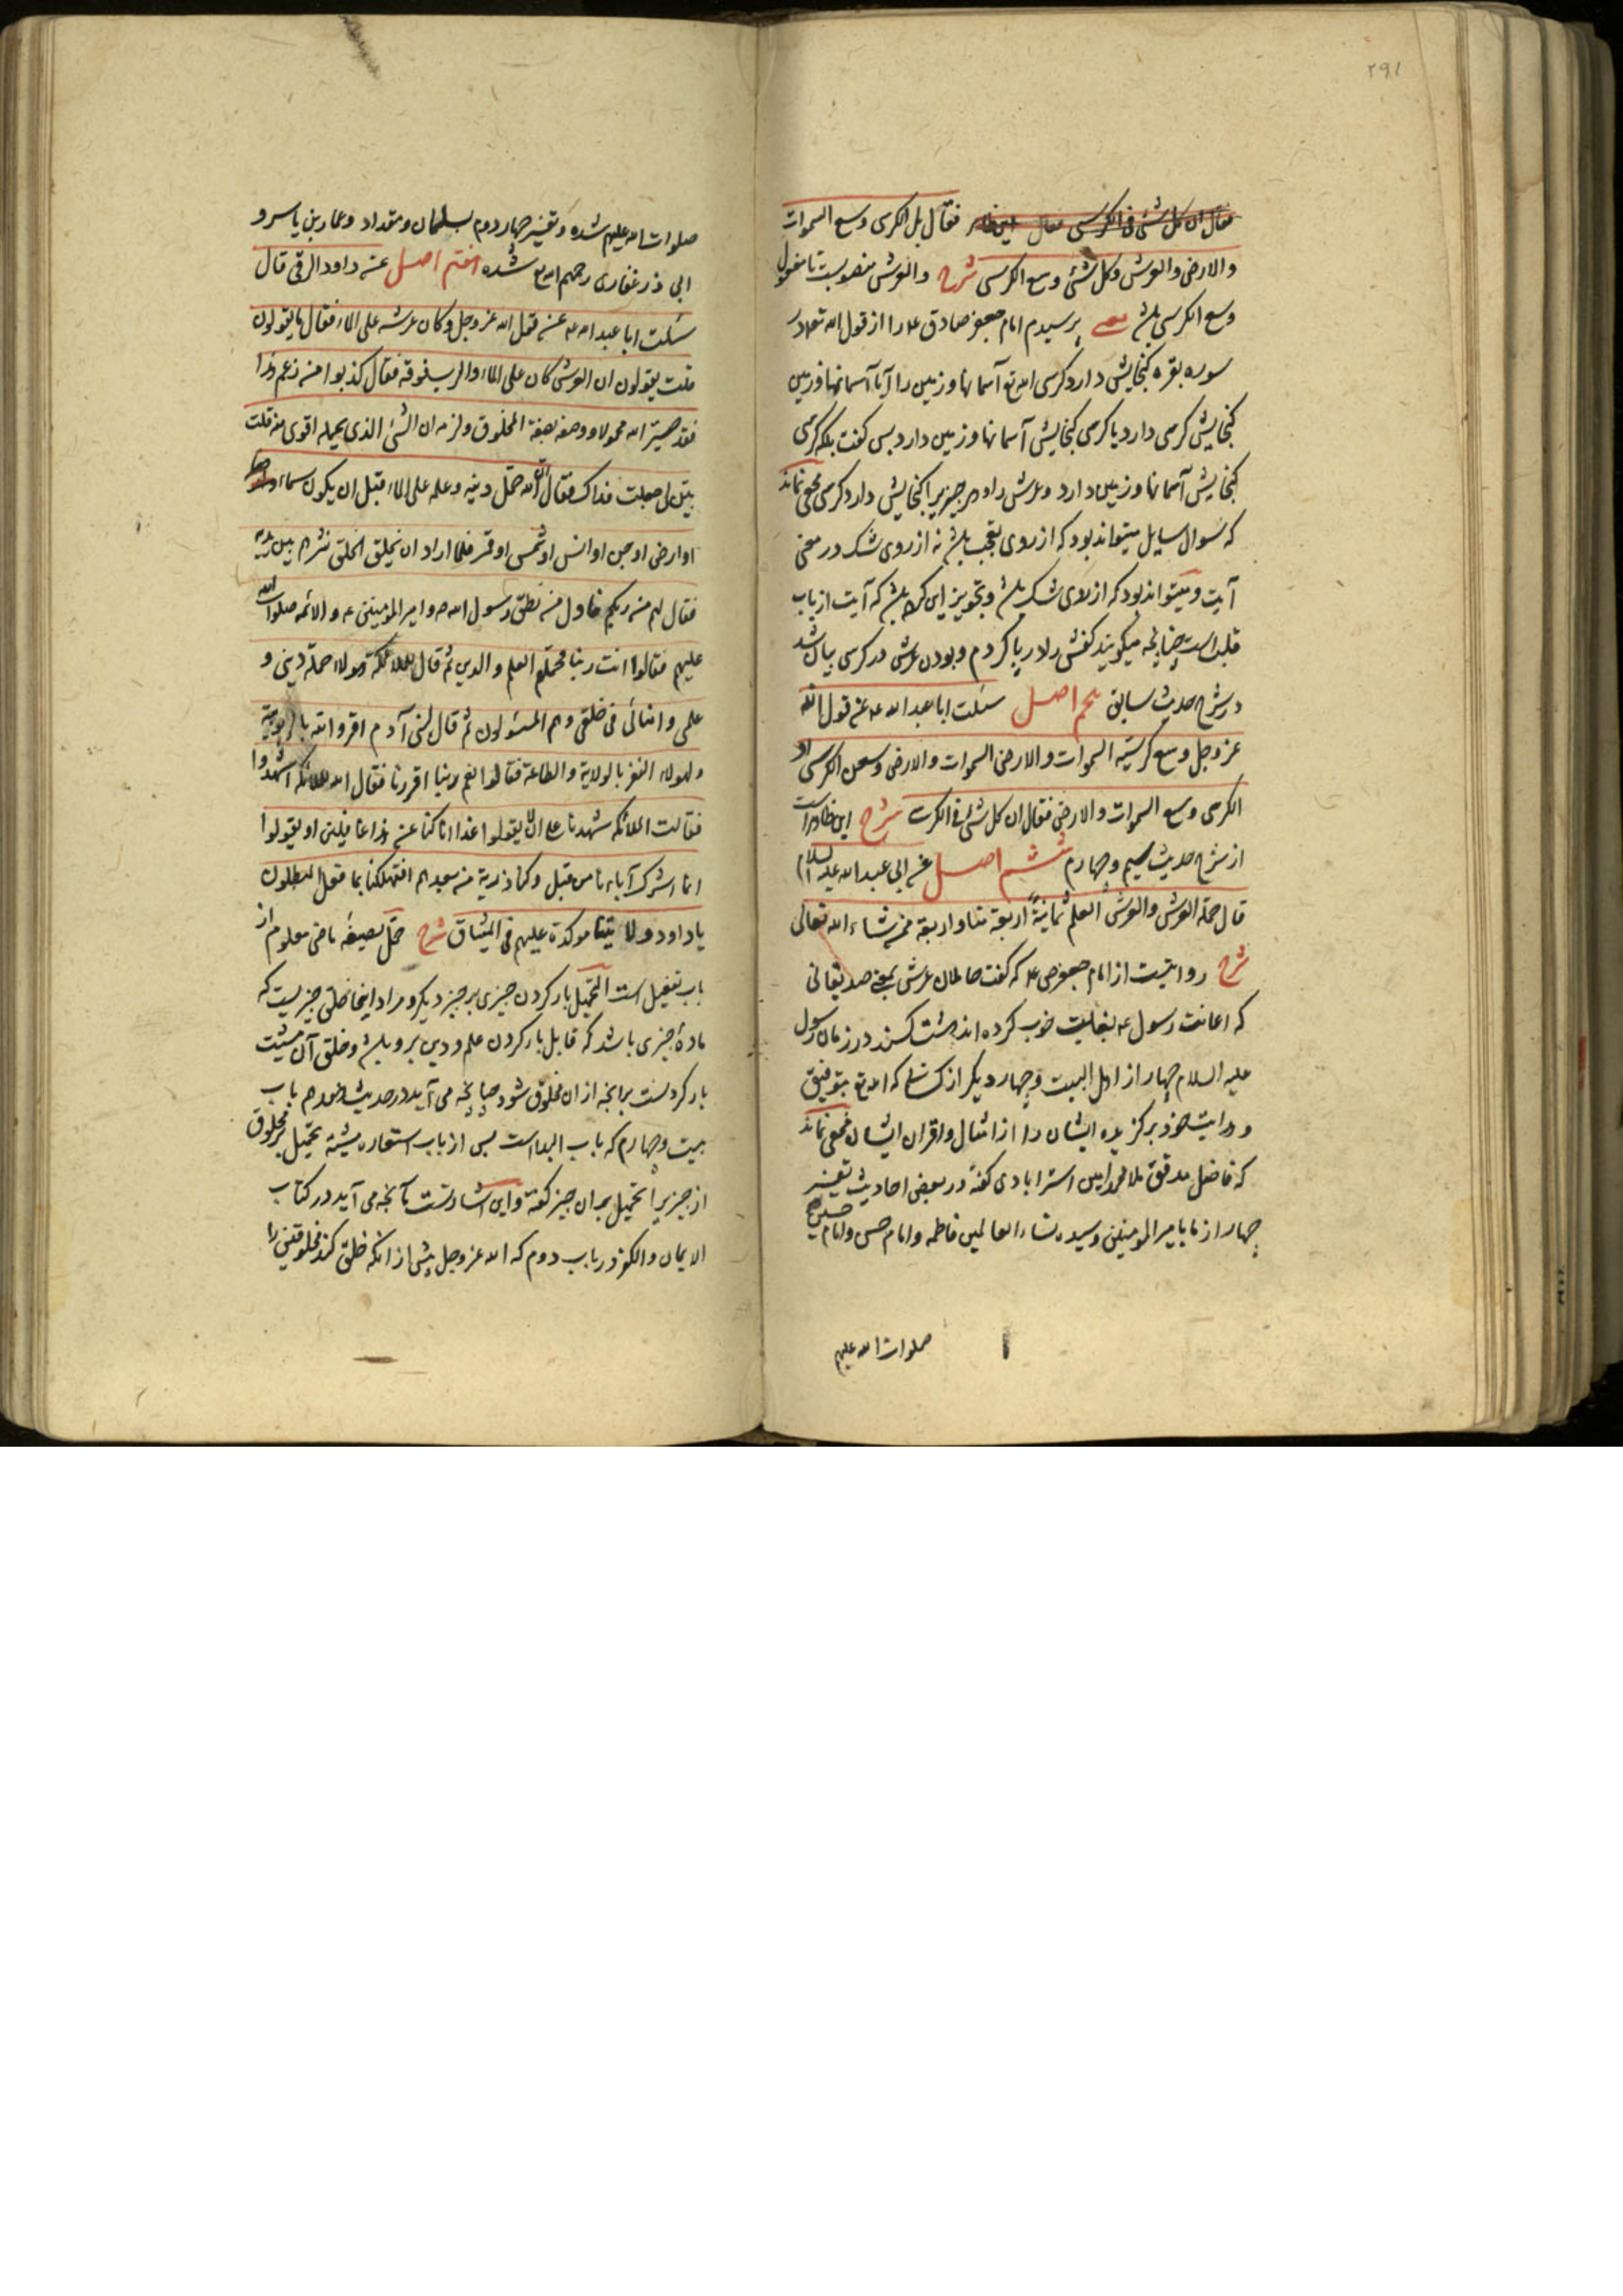 ۲۹۱
فقال ان کل شئ فی الکرسی فقال فقال بل الکرسی وسع السموات
والارض والعرش وکل شئ وسع الکرسی شرح والعرش منصوبست تا مفعول
وسع الکرسی باشد یعنی پرسیدم امام جعفر صادق ع را از قول الله تعه در
سوره بقره کنجایش دارد کرسی الله تع آسمانها و زمین را آیا آسمانها و زمین
کنجایش کرسی دارد یا کرسی کنجایش آسمانها و زمین دارد پس کفت بلکه کرسی
کنجایش آسمانها و زمین دارد و عرش را و هر چیز را کنجایش دارد کرسی مخفی نماند
که سوال سایل میتواند بود که از روی تعجب باشد نه از روی شک در معنی
آیت و میتواند بود که از روی شک باشد و تجویز این کرده باشد که آیت از باب
قلب است چنانچه میکویند کفش را در پا کردم و بودن عرش در کرسی بیان شد
در شرح حدیث سابق پنجم اصل سئلت ابا عبد الله ع عن قول الله
عز وجل وسع کرسیه السموات والارض السموات والارض وسعن الکرسی او
الکرسی وسع السموات والارض فقال ان کل شئ فی الکرسی شرح این ظاهر است
از شرح حدیث سیم و چهارم ششم اصل عن ابی عبد الله علیه السلام
قال حملة العرش والعرش العلم ثمانیة اربعة منا واربعة ممن شاء الله تعالی
شرح روایتست از امام جعفر ص ع که کفت حاملان عرش یعنی صدیقانی
که اعانت رسول ع بغایت خوب کرده اند هشت کسند در زمان رسول
علیه السلام چهار از اهل البیت و چهار دیکر از کسانی که الله تع بتوفیق
و هدایت خود برکزیده ایشان را از امثال و اقران ایشان مخفی نماند
که فاضل مدقق ملا محمد امین استرابادی کفته در بعض احادیث تفسیر
چهار از ما بامیر المومنین و سیده نساء العالمین فاطمه و امام حسن و امام حسین
صلوات الله علیهم
صلوات الله علیهم شده و تفسیر چهار دوم بسلمان و مقداد و عمار بن یاسر و
ابی ذر غفاری رحمهم الله تع شده هفتم اصل عن داود الرقی قال
سئلت ابا عبد الله ع عن قول الله عز وجل وکان عرشه علی الماء فقال ما یقولون
قلت یقولون ان العرش کان علی الماء والرب فوقه فقال کذبوا من زعم هذا
فقد صیر الله محمولا ووصفه بصفة المخلوق ولزمه ان الشئ الذی یحمله اقوی منه قلت
بین لی جعلت فداک فقال ان الله حمل دینه وعلمه علی الماء قبل ان یکون سماء
او ارض او جن او انس او شمس او قمر فلما اراد ان یخلق الخلق نثرهم بین یدیه
فقال لهم من ربکم فاول من نطق رسول الله ص وامیر المومنین ع والائمه صلوات الله
علیهم فقالوا انت ربنا فحملهم العلم والدین ثم قال للملائکة هولاء حملة دینی و
علمی وامنائی فی خلقی وهم المسئولون ثم قال لبنی آدم اقروا لله بالربوبیة
ولهولاء النفر بالولایة والطاعة فقالوا نعم ربنا اقررنا فقال الله للملائکة اشهدوا
فقالت الملائکه شهدنا علی ان لا یقولوا غدا انا کنا عن هذا غافلین او یقولوا
انما اشرک آباءنا من قبل وکنا ذریة من بعدهم افتهلکنا بما فعل المبطلون
یا داود ولا یتنا موکدة علیهم فی المیثاق شرح حمل بصیغه ماضی معلوم از
باب تفعیل است التحمیل بار کردن چیزی بر چیز دیکر و مراد اینجا خلق چیزیست که
ماده چیزی باشد که قابل بار کردن علم و دین برو باشد و خلق آن مشیت
بار کردنست بر آنچه از ان مخلوق شود چنانچه می آید در حدیث باب
بیست و چهارم که باب البداست پس از باب استعاره تحمیل بر مخلوق
از چیز را تحمیل بر ان چیز کفته و این اشارتست بآنچه می آید در کتاب
الایمان والکفر در باب دوم که الله عز وجل پیش از انکه خلق کند مخلوقین را